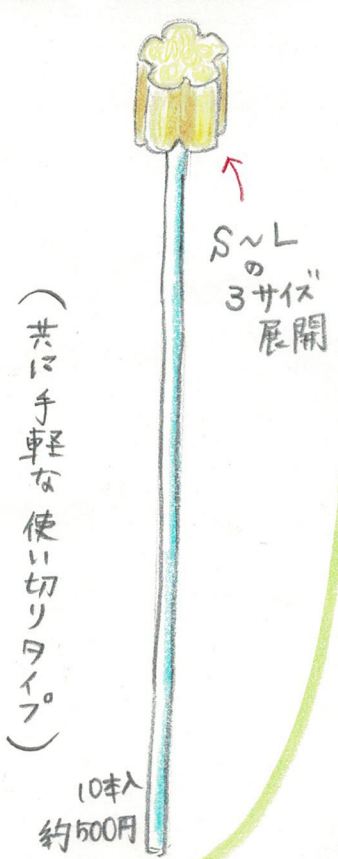 S～L
の
3サイズ
展開
(共に手軽な使い切りタイプ)
10本入
約500円